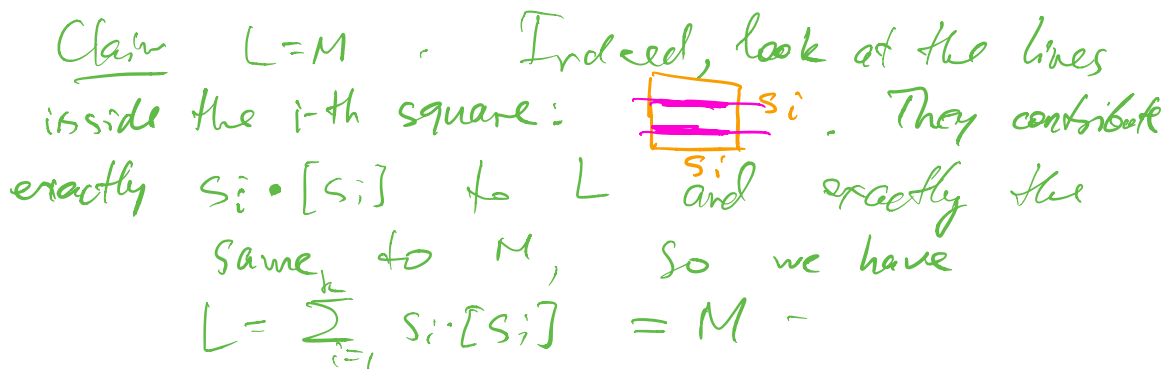 Claim L=M. Indeed, look at the lines
inside the i-th square: si si. They contribute
exactly si·[si] to L and exactly the
same to M, so we have
L = ∑_{i=1}^{k} si·[si] = M -